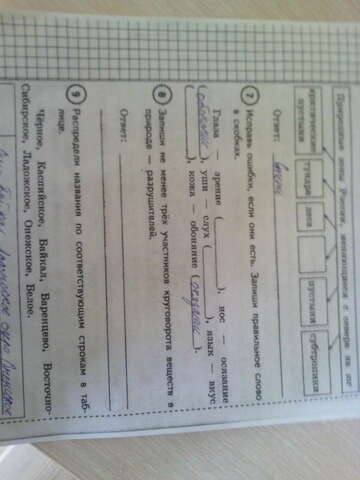 Природные зоны России, меняющиеся с севера на юг
арктические пустыни
тундра
леса
пустыни
субтропики
Ответ: степи
7 Исправь ошибки, если они есть. Запиши правильное слово
в скобках.
Глаза — зрение ( ), нос — осязание
(обоняние), уши — слух ( ), язык — вкус
( ), кожа — обоняние (осязание).
8 Запиши не менее трёх участников круговорота веществ в
природе — разрушителей.
Ответ:
9 Распредели названия по соответствующим строкам в таб-
лице.
Чёрное, Каспийское, Байкал, Баренцево, Восточно-
Сибирское, Ладожское, Онежское, Белое.